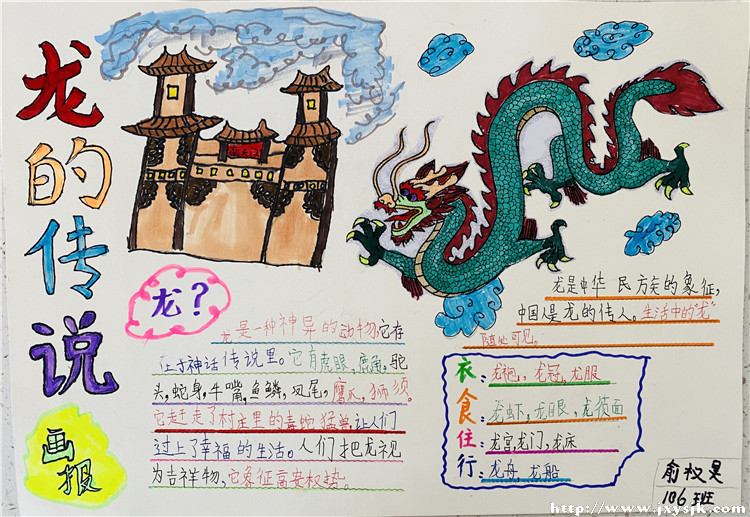 龙的传说
画报
龙？
龙是一种神异的动物，它存
在于神话传说里。它有虎眼，鹿角，驼
头，蛇身，牛嘴，鱼鳞，凤尾，鹰爪，狮须。
它赶走了村庄里的毒蛇猛兽，让人们
过上了幸福的生活。人们把龙视
为吉祥物，它象征富安权势。
龙是中华民族的象征，
中国人是龙的传人。生活中的“龙”
随处可见。
衣：龙袍、龙冠，龙服
食：龙虾，龙眼，龙须面
住：龙宫，龙门，龙床
行：龙舟，龙船
俞权昊
106班
http://www.jxysjk.com/